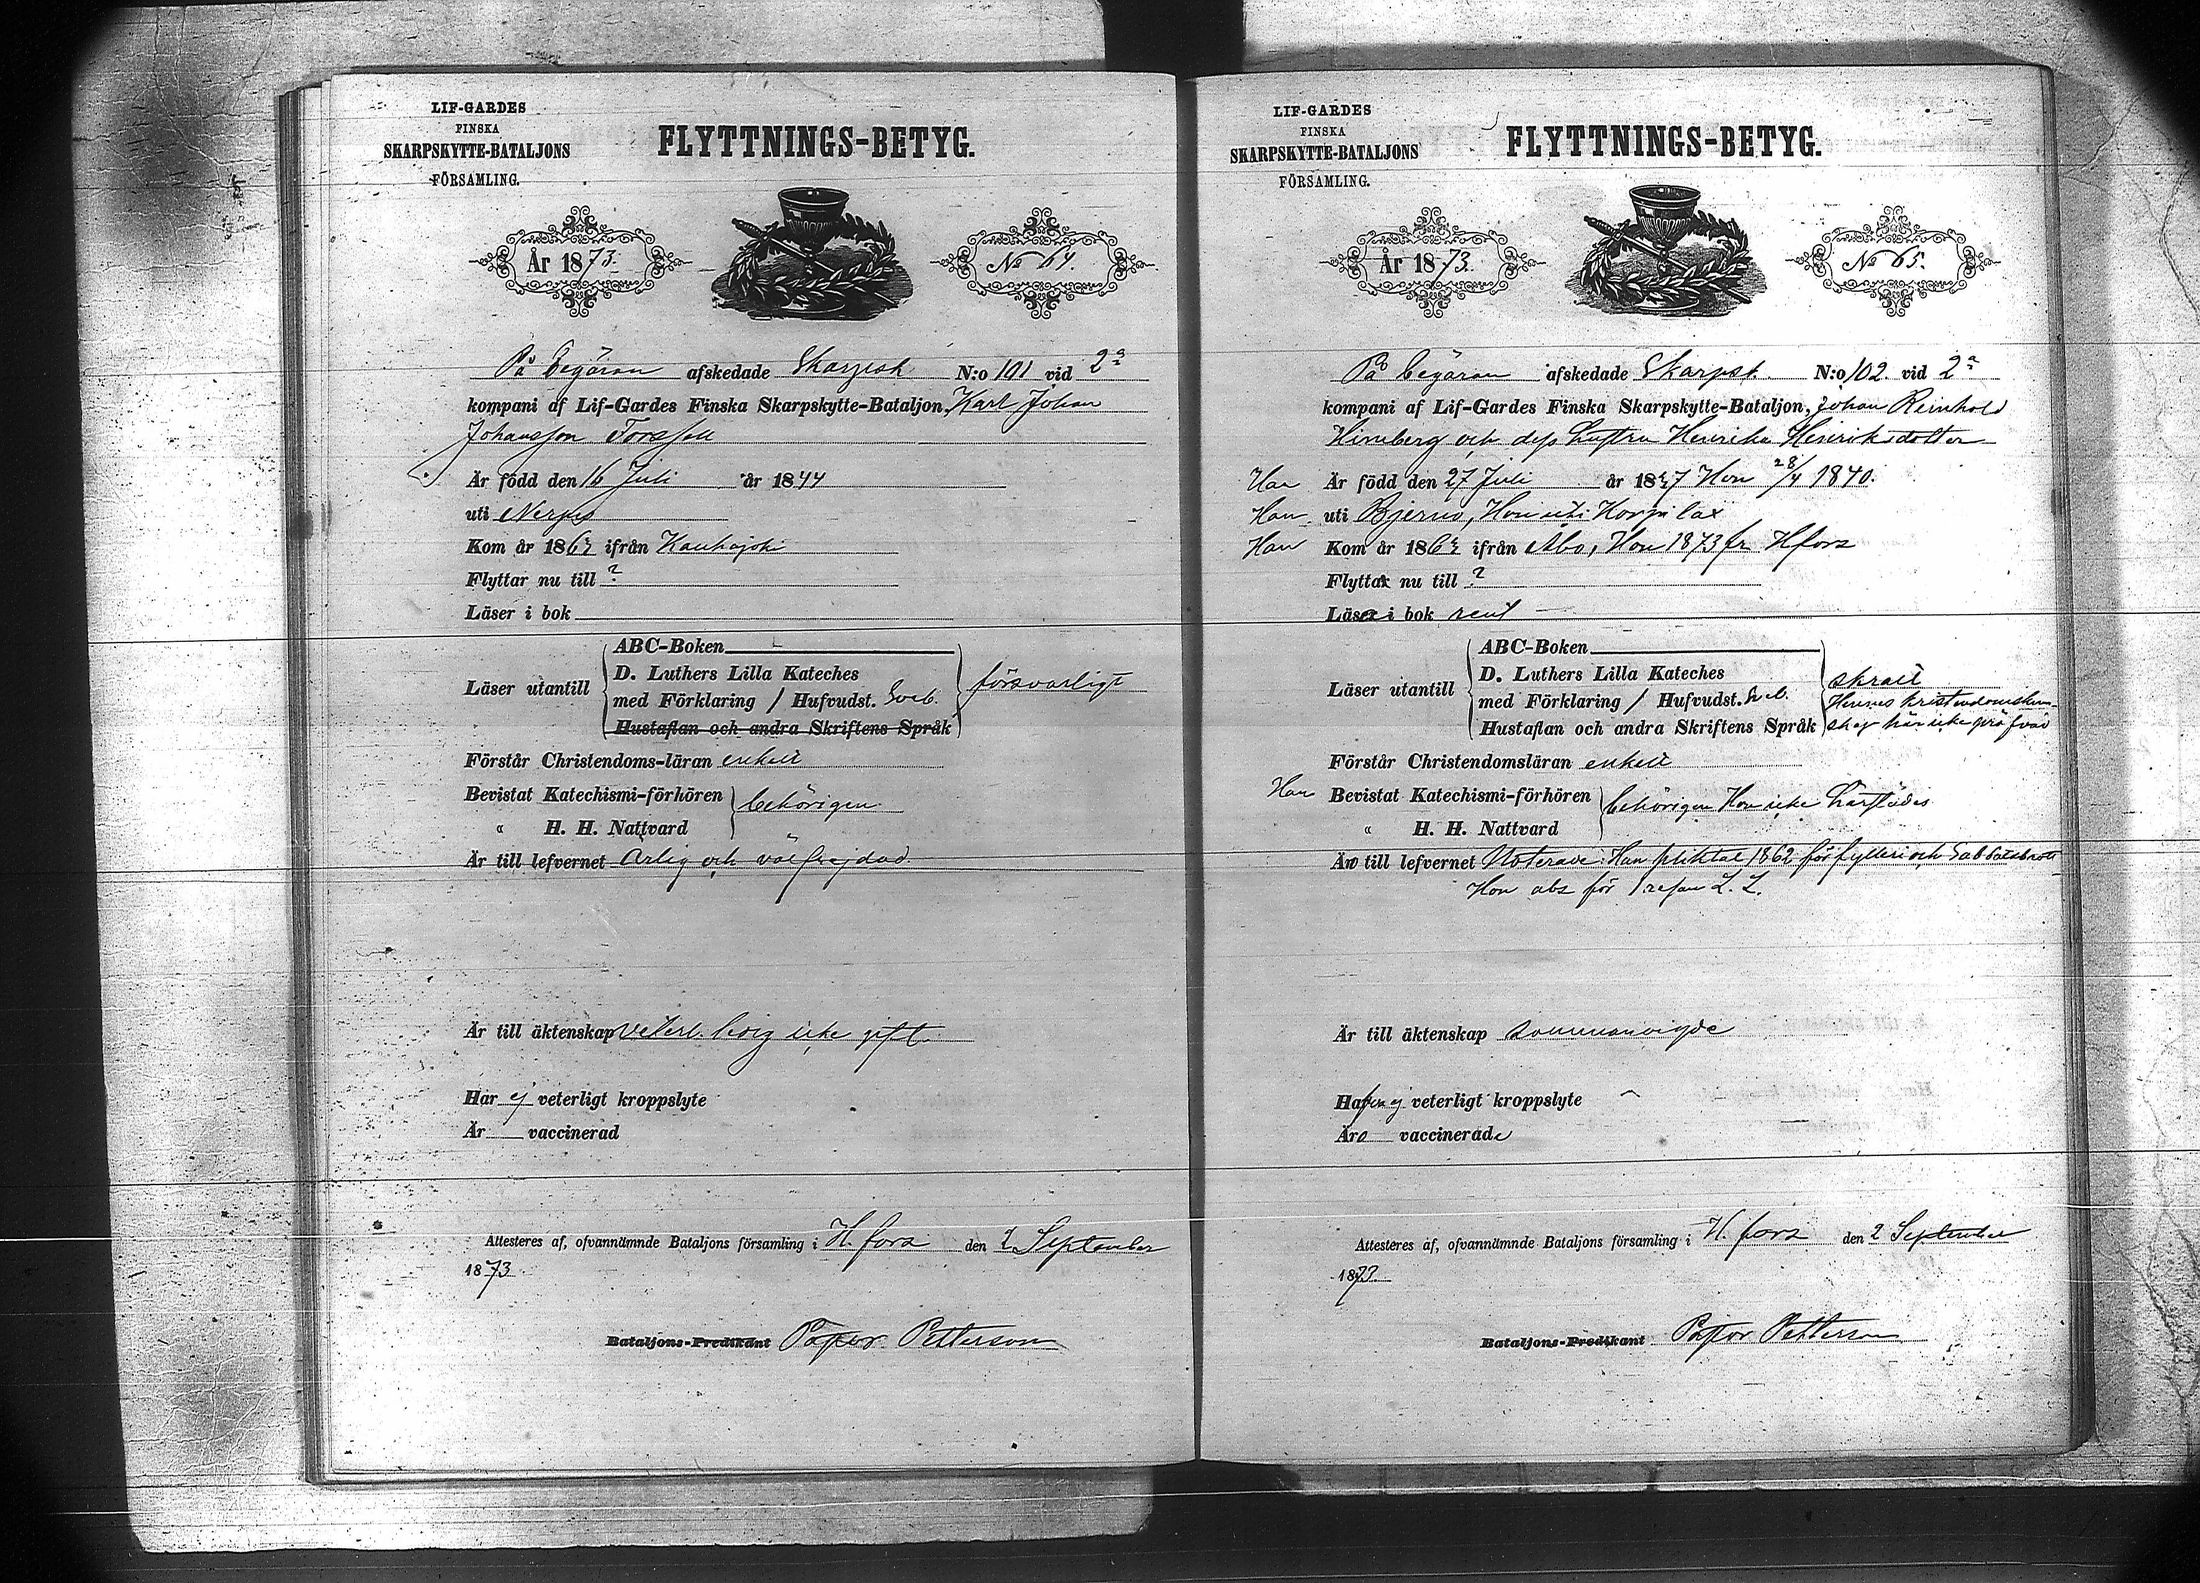 LIF-GARDES
FINSKA
SKARPSKYTTE-BATALJONS
FÖRSAMLING.
FLYTTNINGS-BETYG.
År 1873.
No 64.
På begäran afskedade Skarpsk N:o 101 vid 2a
kompani af Lif-Gardes Finska Skarpskytte-Bataljon, Karl Johan
Johansson Forssell
Är född den 16 Juli år 1844
uti Nerpes
Kom år 186 ifrån Kauhajoki
Flyttar nu till ?
Läser i bok
Läser utantill
ABC-Boken
D. Luthers Lilla Kateches
med Förklaring / Hufvudst. Sveb.
Hustaflan och andra Skriftens Språk
försvarligt
Förstår Christendoms-läran enkelt
Bevistat Katechismi-förhören
" H. H. Nattvard
behörigen
Är till lefvernet Ärlig och välfrejdad
Är till äktenskap veterl. ledig icke gift.
Har ej veterligt kroppslyte
Är vaccinerad
Attesteres af, ofvannämnde Bataljons församling i H.fors den 2 September
1873.
Bataljons-Predikant Pastor Petterson
LIF-GARDES
FINSKA
SKARPSKYTTE-BATALJONS
FÖRSAMLING.
FLYTTNINGS-BETYG.
År 1873.
No 65.
På begäran afskedade Skarpsk. N:o 102. vid 2a
kompani af Lif-Gardes Finska Skarpskytte-Bataljon, Johan Reinhold
Himberg och dess hustru Henrika Henriksdotter
Han Är född den 27 Juli år 1837 Hon 28/4 1840.
Han uti Bjerno, Hon uti Korpilax
Han Kom år 186 ifrån Åbo, Hon 1873 fr. Hfors
Flytta nu till ?
Läsa i bok rent
Läser utantill
ABC-Boken
D. Luthers Lilla Kateches
med Förklaring / Hufvudst. Sveb.
Hustaflan och andra Skriftens Språk
skralt
Hennes kristendomskun-
skap här icke pröfvad
Förstår Christendomsläran enkelt
Han Bevistat Katechismi-förhören
" H. H. Nattvard
behörigen Hon icke härstädes
Äro till lefvernet Noterade: Han pliktat 1862 för fylleri och Sabbatsbrott
Hon abs för L. L.
Är till äktenskap sammanvigde
Hafva ej veterligt kroppslyte
Äro vaccinerade
Attesteres af, ofvannämnde Bataljons församling i H.fors den 2 September
1873.
Bataljons-Predikant Pastor Petterson